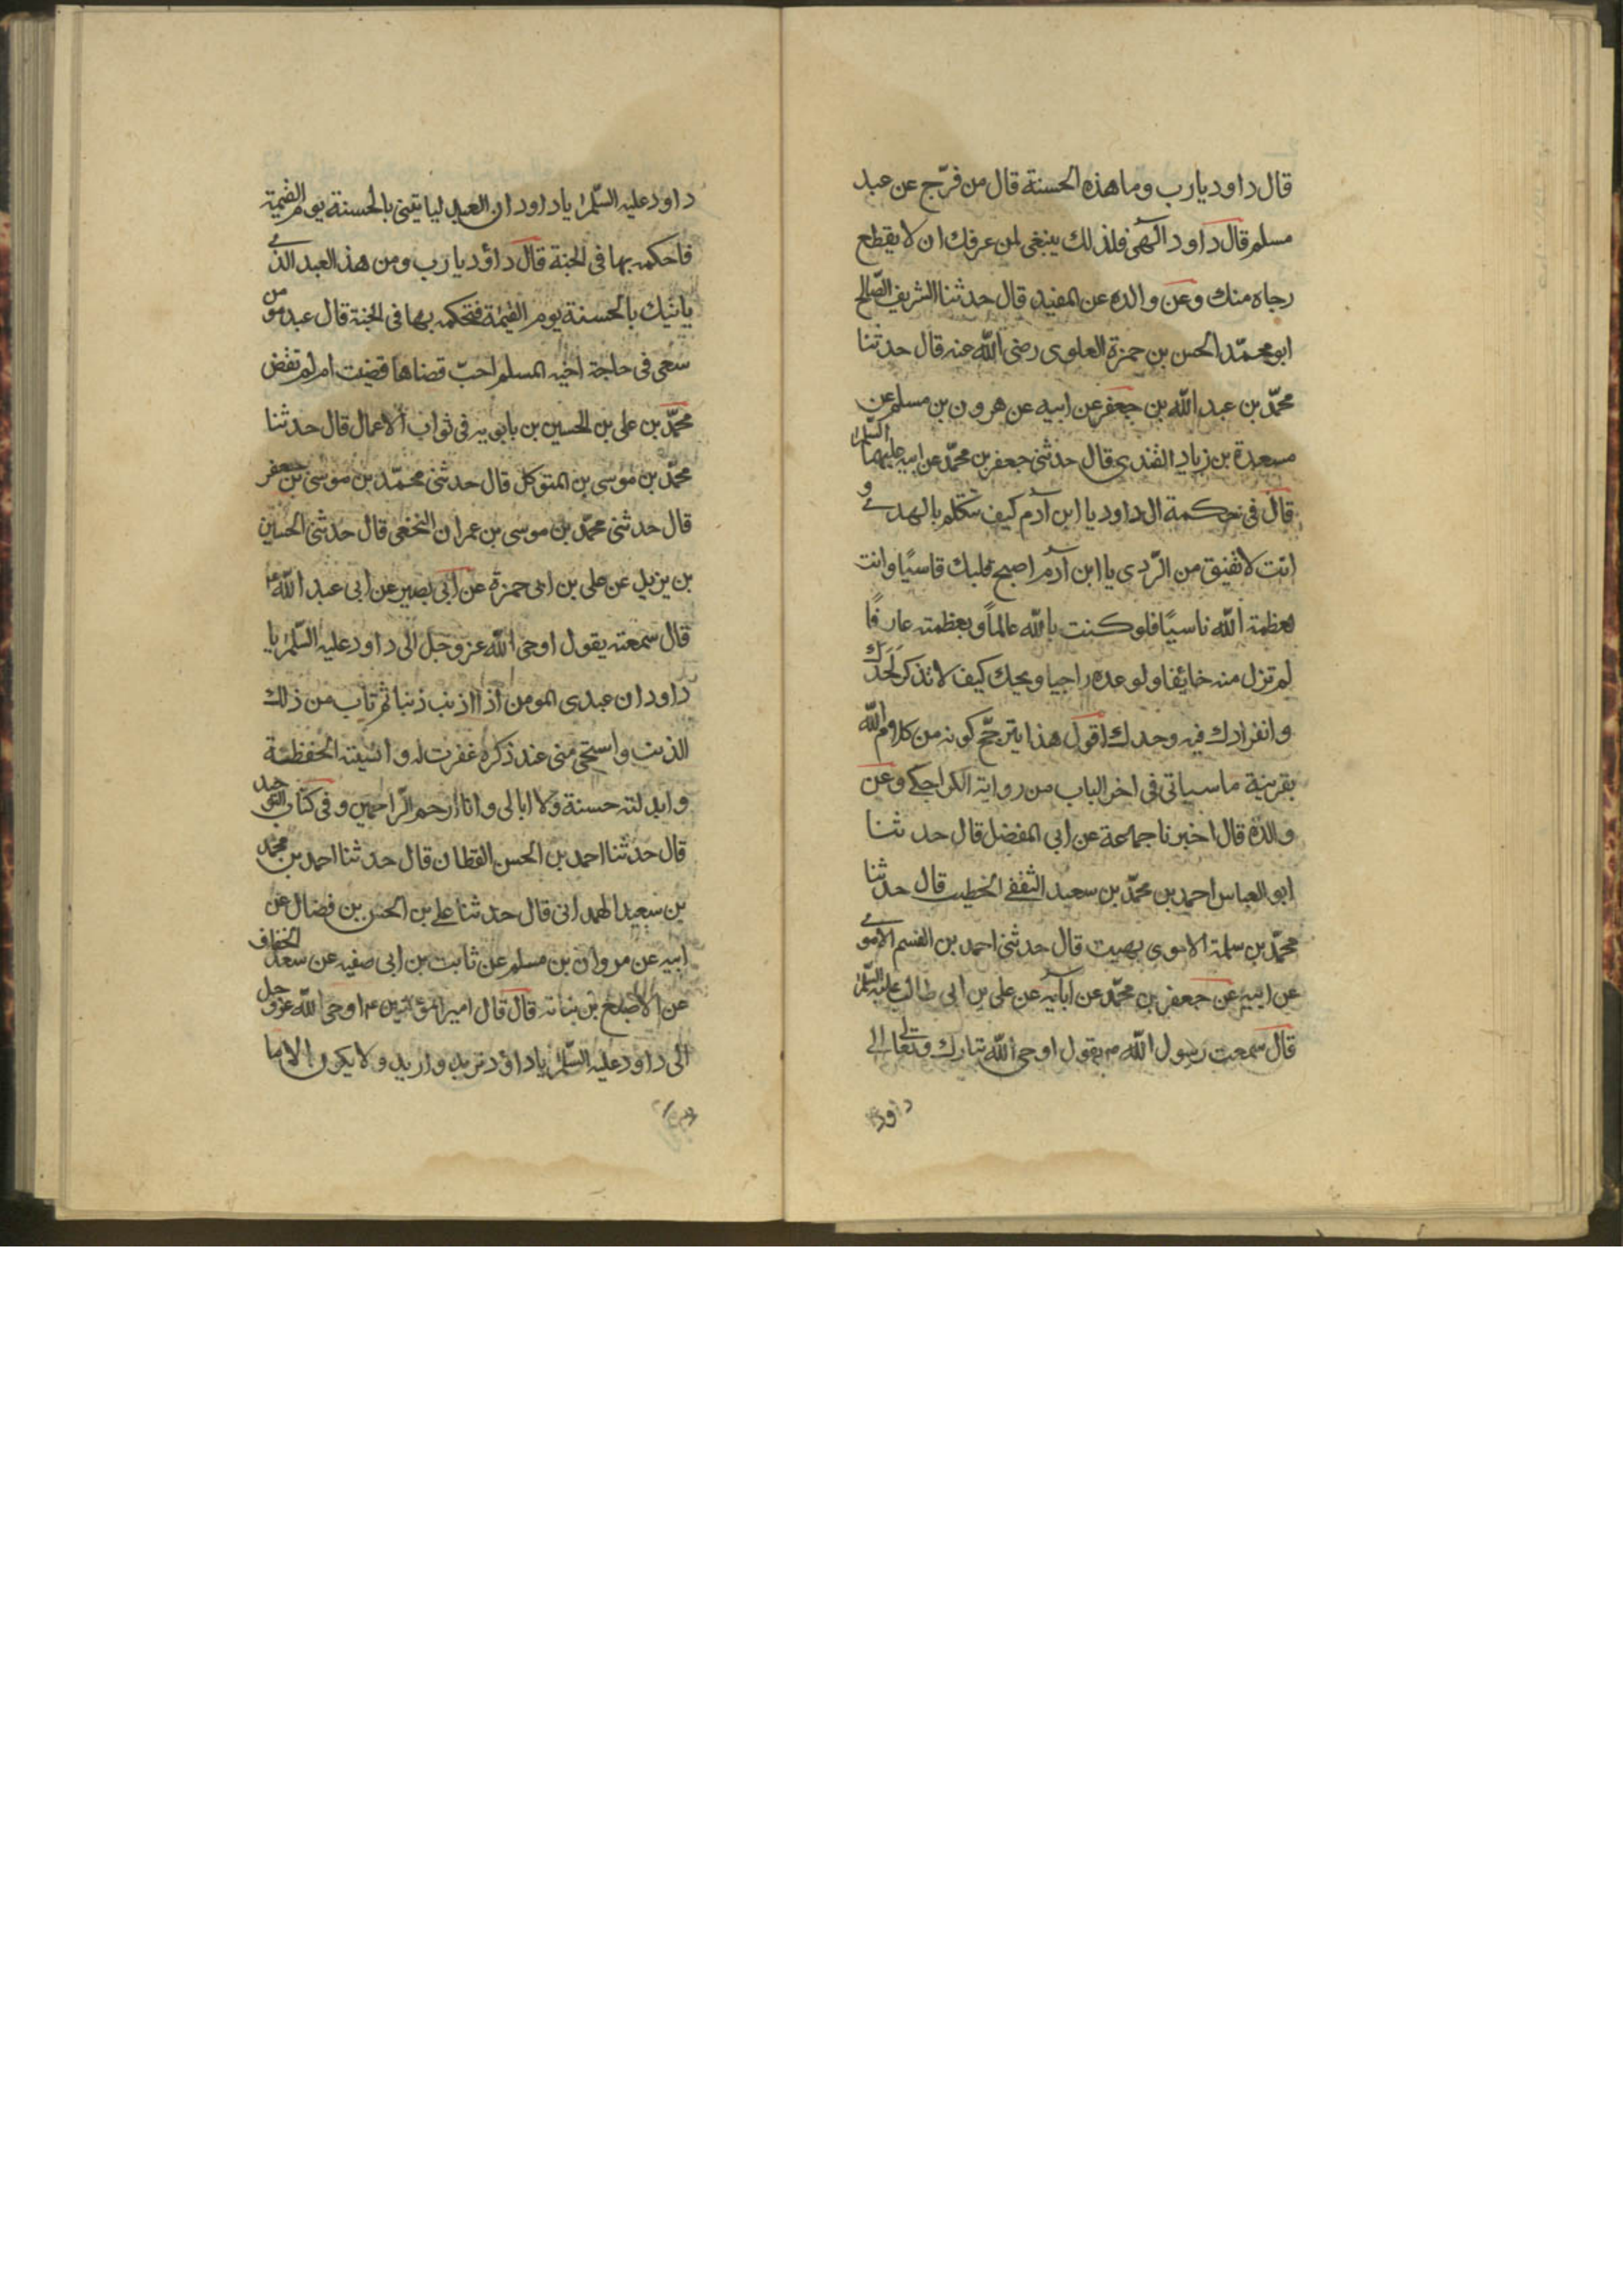 قال داود يا رب وما هذه الحسنة قال من فرّج عن عبد
مسلم قال داود الٓهى فلذلك ينبغى لمن عرفك ان لا يقطع
رجاه منك وعن والده عن المفيد قال حدثنا الشريف الصّالح
ابو محمّد الحسن بن حمزة العلوى رضى الله عنه قال حدثنا
محمّد بن عبد الله بن جعفر عن ابيه عن هرون بن مسلم عن
مسعدة بن زياد القندى قال حدثنى جعفر بن محمّد عن ابيه عليهما السّلم
قال فى حكمة ال داود يا ابن آدم كيف تتكلم بالهدى و
انت لا تفيق من الرّدى يا ابن آدم اصبح قلبك قاسيًا وانت
لعظمة الله ناسيًا فلو كنت بالله عالماً وبعظمته عارفًا
لم تزل منه خائفا ولوعده راجيا ويحك كيف لا تذكر لَحدَك
وانفرادك فيه وحدك اقول هذا يترجّح كونه من كلام الله
بقرينة ما سياتى فى اخر الباب من رواية الكراجكى وعن
والده قال اخبرنا جماعة عن ابى المفضل قال حدثنا
ابو العباس احمد بن محمّد بن سعيد الثقفى الخطيب قال حدثنا
محمّد بن سلمة الاموى بهيت قال حدثنى احمد بن القسم الاموى
عن ابيه عن جعفر بن محمّد عن ابآيه عن على بن ابى طالب عليه السّلم
قال سمعت رسول الله ص يقول اوحى الله تبارك وتعالى الى
داود
داود عليه السّلم يا داود ان العبد لياتينى بالحسنة يوم القيمة
فاحكمه بها فى الجنة قال داؤد يا رب ومن هذا العبد الذى
ياتيك بالحسنة يوم القيمة فتحكمه بها فى الجنة قال عبد مومن
سعى فى حاجة اخيه المسلم احبّ قضاها قضيت ام لم تقض
محمّد بن على بن الحسين بن بابويه فى ثواب الاعمال قال حدثنا
محمّد بن موسى بن المتوكل قال حدثنى محمّد بن موسى بن جعفر
قال حدثنى محمّد بن موسى بن عمران النخعى قال حدثنى الحسين
بن يزيد عن على بن ابى حمزة عن ابى بصير عن ابى عبد الله ع
قال سمعته يقول اوحى الله عز وجل الى داود عليه السّلم يا
داود ان عبدى المومن اذا اذنب ذنبا ثم تاب من ذلك
الذنب واستحى منى عند ذكره غفرت له وانسيته الحفظة
وابدلته حسنة ولا ابالى وانا ارحم الرّاحمين وفى كتاب التوحيد
قال حدثنا احمد بن الحسن القطان قال حدثنا احمد بن محمّد
بن سعيد الهمدانى قال حدثنا على بن الحسن بن فضال عن
ابيه عن مروان بن مسلم عن ثابت بن ابى صفيه عن سعد الخفاف
عن الاصبغ بن نباته قال قال امير المؤمنين ع اوحى الله عز وجل
الى داود عليه السّلم يا داؤد تريد واريد ولا يكون الا ما